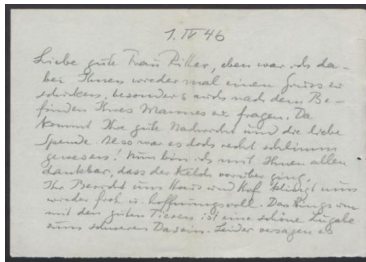 1. IV 46
Liebe gute Frau Ritter, eben war ich da-
bei Ihnen wieder mal einen Gruss zu
schicken, besonders auch nach dem Be-
finden Ihres Mannes zu fragen. Da
kommt Ihre gute Nachricht und die liebe
Spende. Das war es doch recht schlimm
gewesen! Nun bin ich mit Ihnen allen
dankbar, dass der Kelch vorüber ging.
Ihr Bericht um Haus und Hof klingt nun
wieder froh u. hoffnungsvoll. Das Rings um
mit den guten Tieren ist eine schöne Zugabe
zum schweren Dasein. Leider versagen es